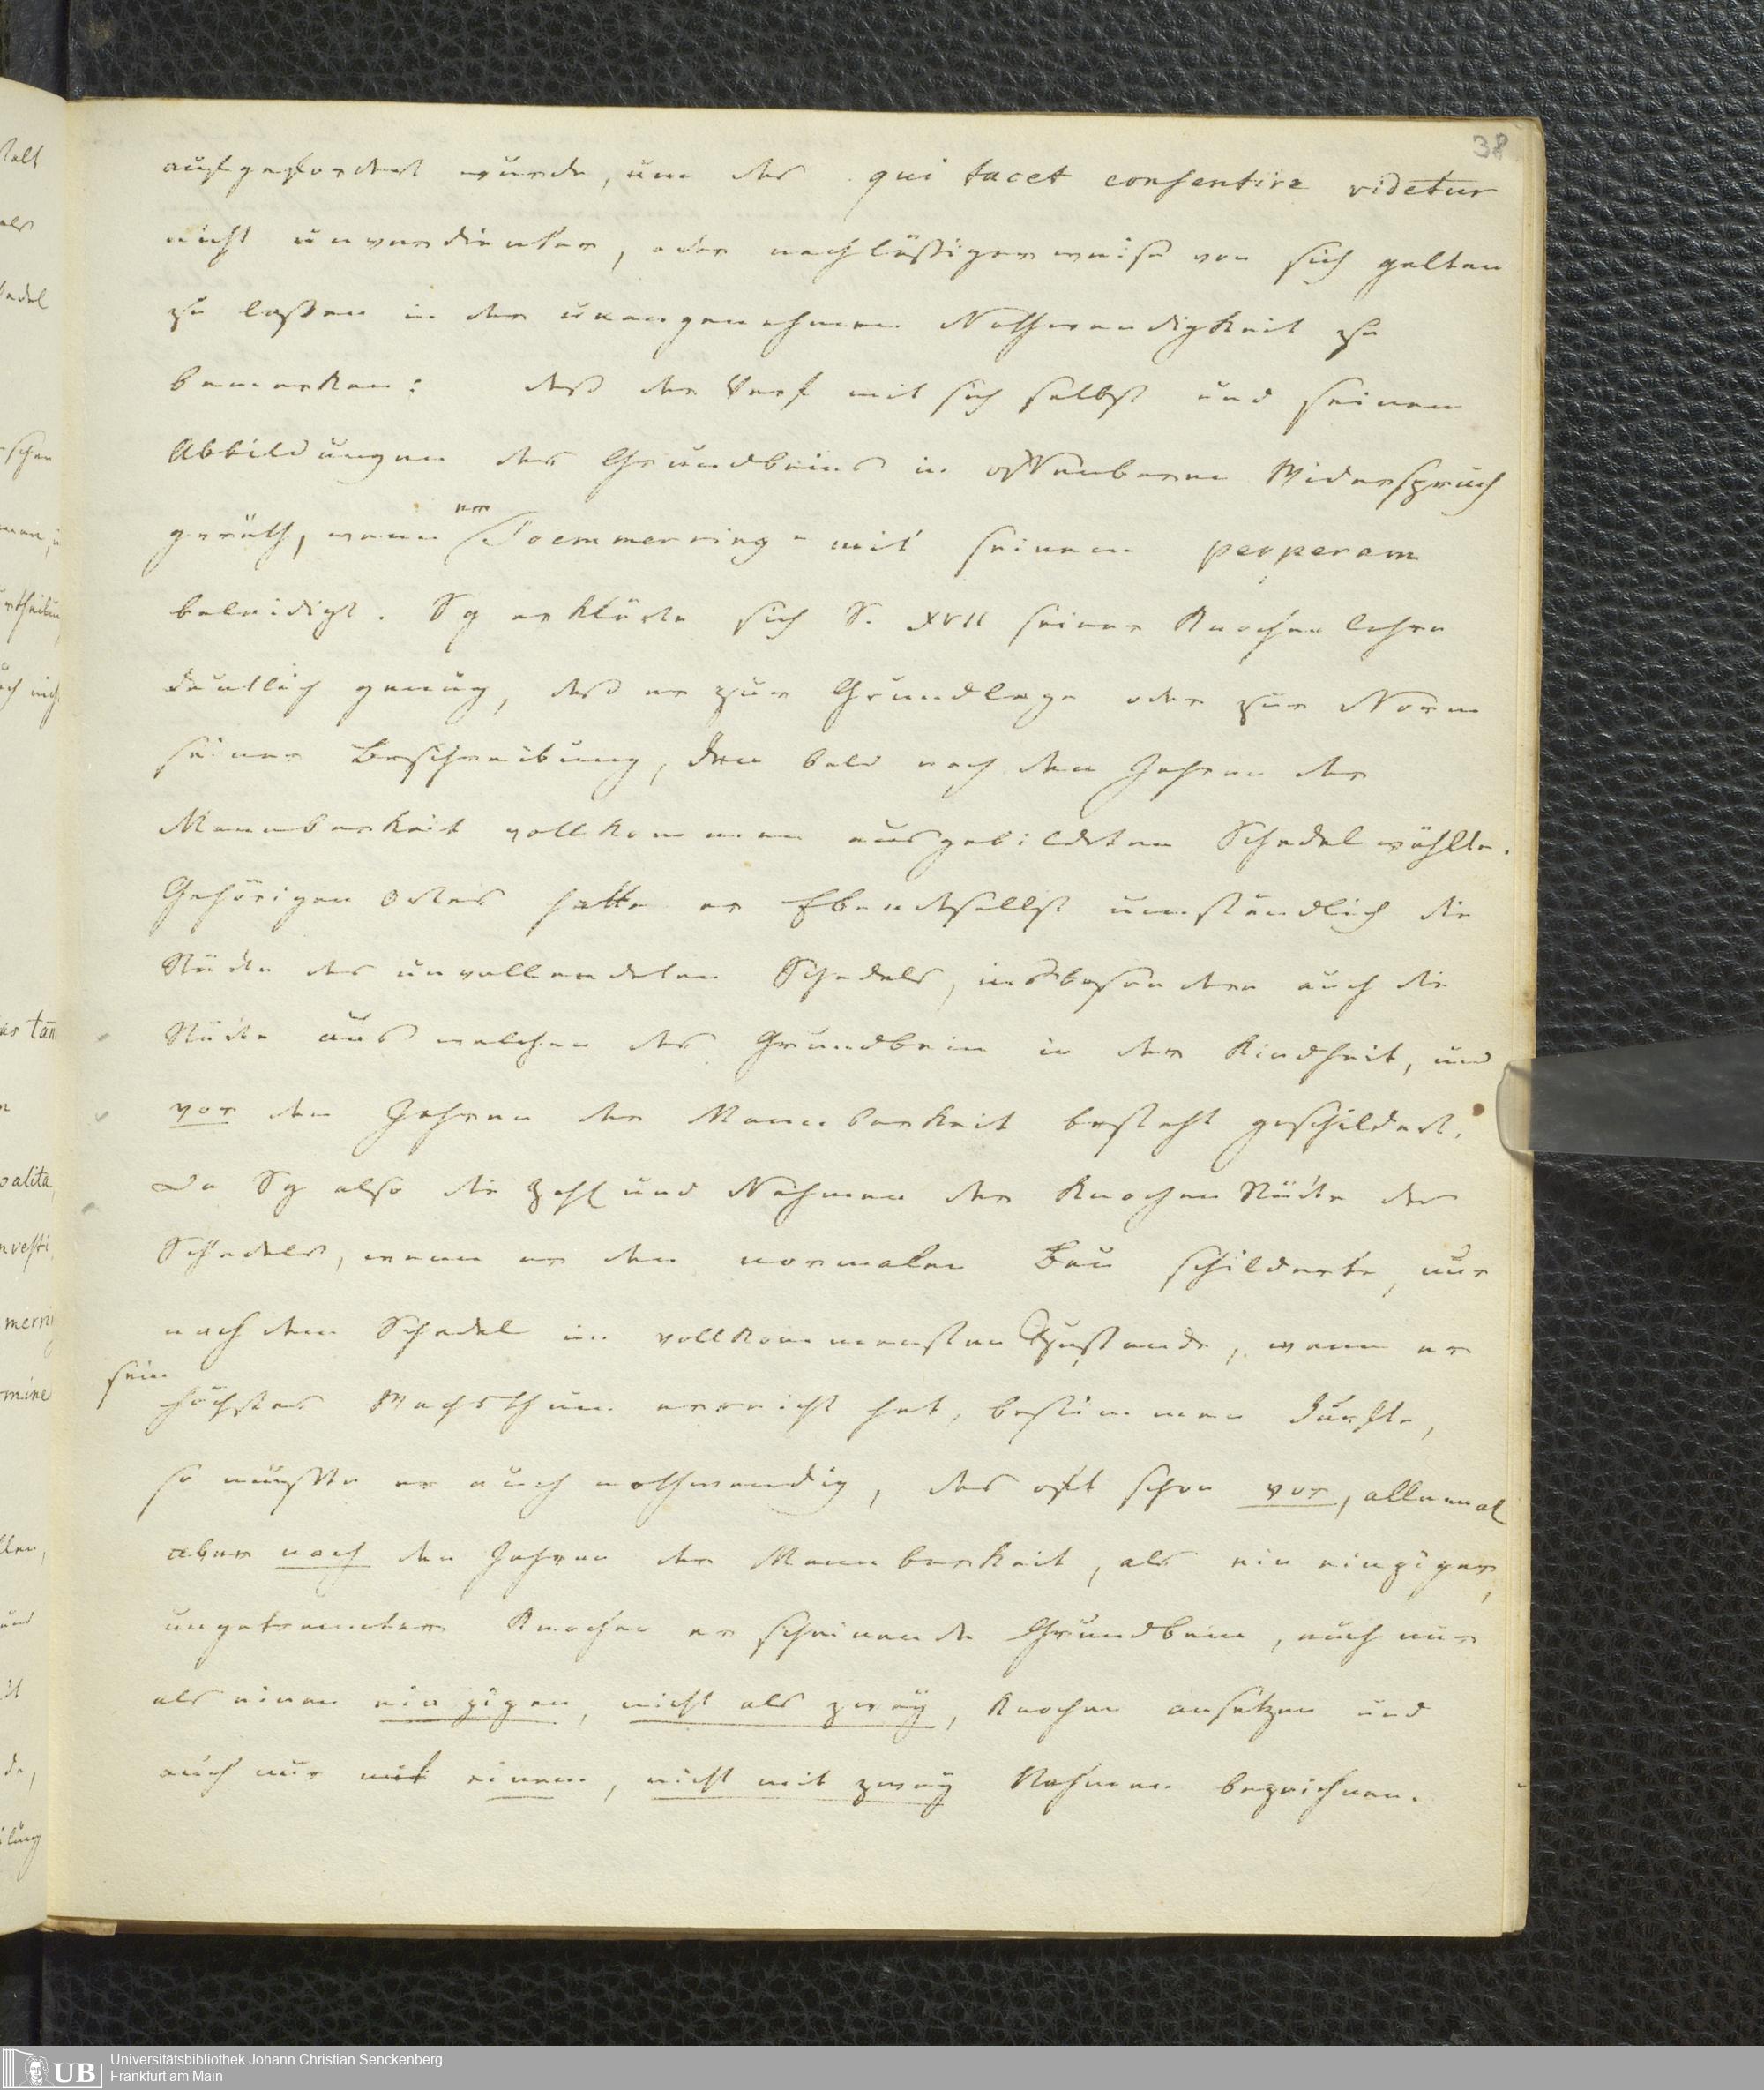 38
aufgefordert wurde, um das qui tacet consentire videtur
nicht unverdienter, oder nachläßigerweise von sich gelten
zu laßen in der unangenehmen Nothwendigkeit zu
bemerken: daß der Verf mit sich selbst und seinen
Abbildungen des Grundbeins in offenbaren Widerspruch
geräth, wenn er Soemmerring mit seinem perperam
beleidigt. Sg erklärte sich S. XVII seiner Knochenlehre
deutlich genug, daß er zur Grundlage oder zur Norm
seiner Beschreibung, den bald nach den Jahren der
Mannbarkeit vollkommen ausgebildeten Schedel wählte.
Gehörigen Ortes hatte er Ebendaselbst umständlich die
Stücke des unvollendeten Schedels, insbesondere auch die
Stücke aus welchen das Grundbein in der Kindheit, und
vor den Jahren der Mannbarkeit besteht geschildert.
Da Sg also die Zahl und Nahmen der Knochen Stücke des
Schedels, wenn er den normalen Bau schilderte, nur
nach dem Schedel im vollkommensten Zustande, wenn er
sein höchstes Wachsthum erreicht hat, bestimmen durfte,
so mußte er auch nothwendig, das oft schon vor, allemal
aber nach den Jahren der Mannbarkeit, als ein einziger,
ungetrennter Knochen erscheinende Grundbein, auch nur
als einen einzigen, nicht als zwey, Knochen ansetzen und
auch nur mit einem, nicht mit zwey Nahmen bezeichnen.
UB
Universitätsbibliothek Johann Christian Senckenberg
Frankfurt am Main